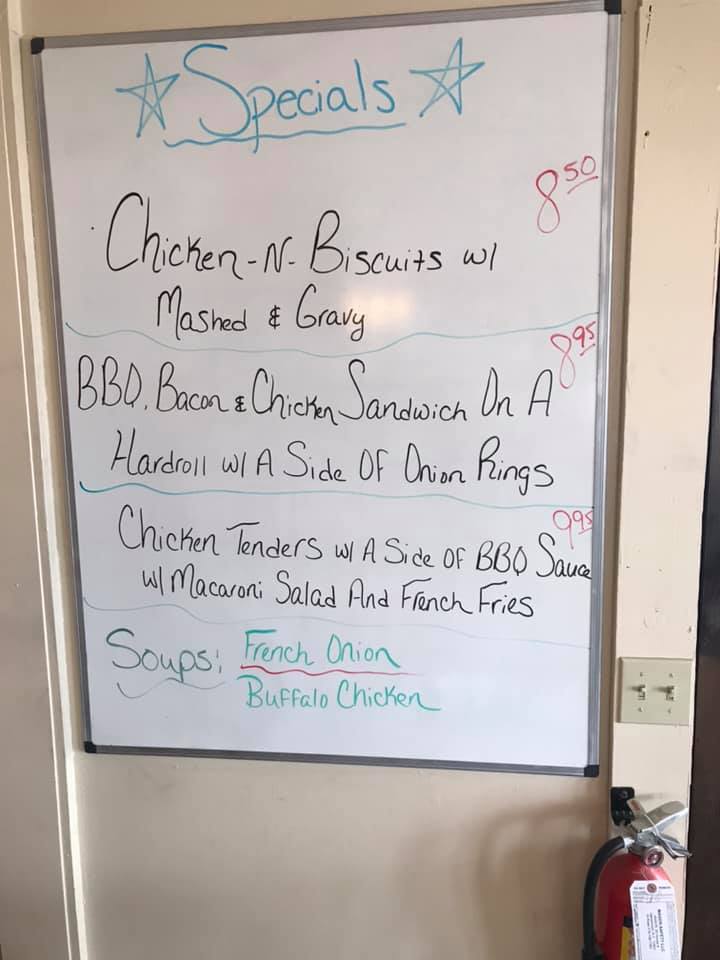 Specials
8.50
Chicken-N-Biscuits w/
Mashed & Gravy
8.95
BBQ, Bacon & Chicken Sandwich On A
Hardroll w/ A Side Of Onion Rings
9.95
Chicken Tenders w/ A Side Of BBQ Sauce
w/ Macaroni Salad And French Fries
Soups: French Onion
Buffalo Chicken